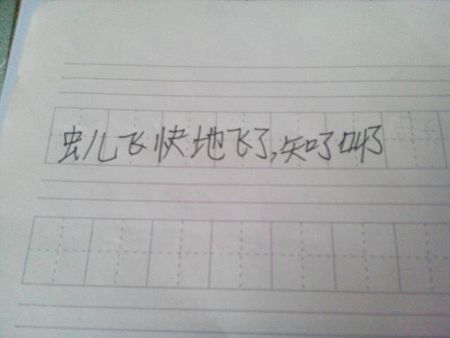 虫儿飞快地飞了,知了叫了